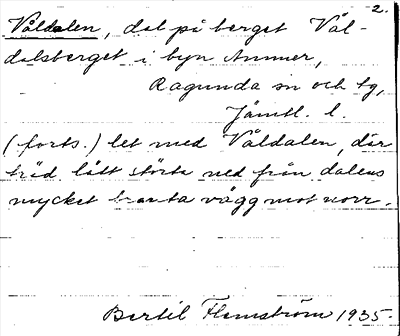 2.
Våldalen, dal på berget Vål-
dalsberget i byn Ammer,
Ragunda sn och tg,
Jämtl. l.
(forts.) let med Våldalen, där
träd lått störta ned från dalens
mycket branta vägg mot norr.
Bertil Flemström 1935.